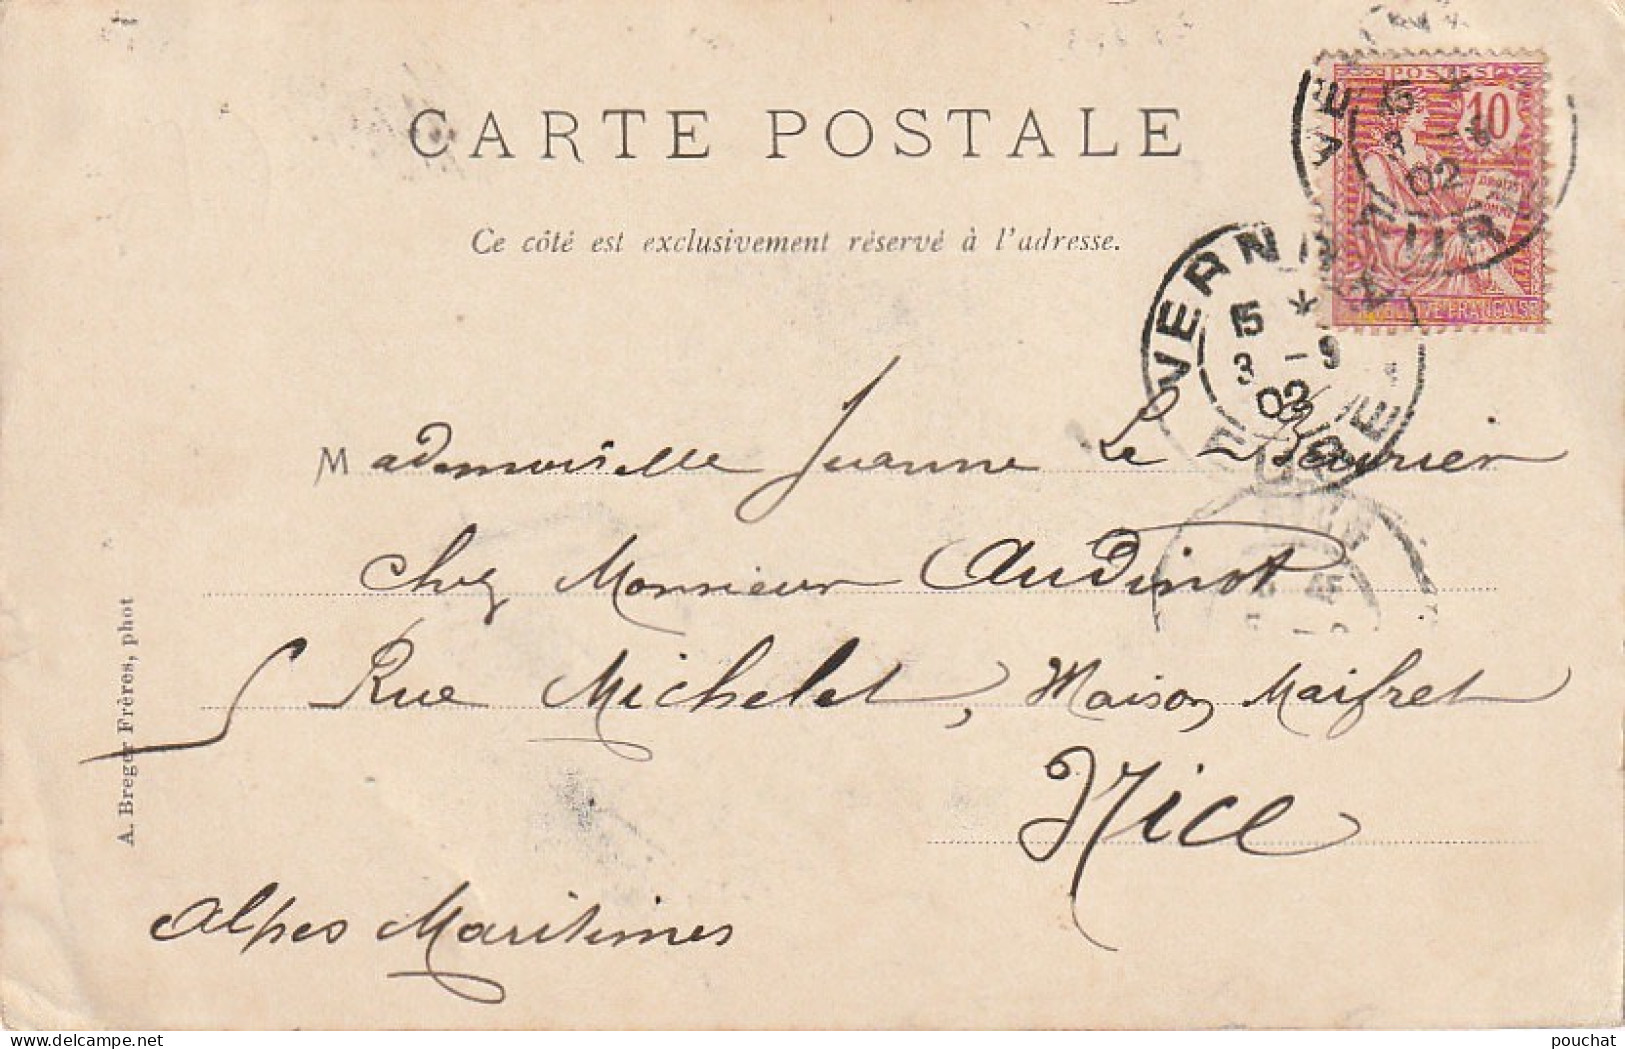 CARTE POSTALE
Ce côté est exclusivement réservé à l'adresse.
POSTES
10
DROITS DE L'HOMME
15 *
3 -9
02
EURE
VERNON
15 *
3 -9
02
EURE
Mademoiselle Jeanne Le Beurier
Chez Monsieur Audinot
5 Rue Michelet, Maison Maifret
Nice
Alpes Maritimes
A. Breger Frères, phot
delcampe.net
pouchat